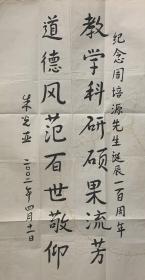 纪念周培源先生诞辰一百周年
教学科研硕果流芳
道德风范百世敬仰
朱光亚 二〇〇二年四月十一日